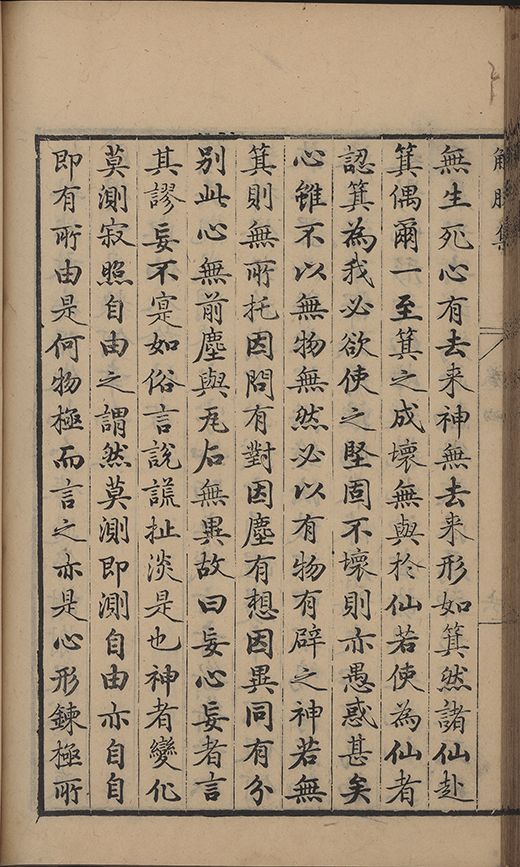 解脫集
無生死心有去来神無去来形如箕然諸仙赴
箕偶爾一至箕之成壞無與於仙若使為仙者
認箕為我必欲使之堅固不壞則亦愚惑甚矣
心雖不以無物無然必以有物有辟之神若無
箕則無所托因問有對因塵有想因異同有分
别此心無前塵與瓦石無異故曰妄心妄者言
其謬妄不寔如俗言說謊扯淡是也神者變化
莫測寂照自由之謂然莫測即測自由亦自自
即有所由是何物極而言之亦是心形鍊極所